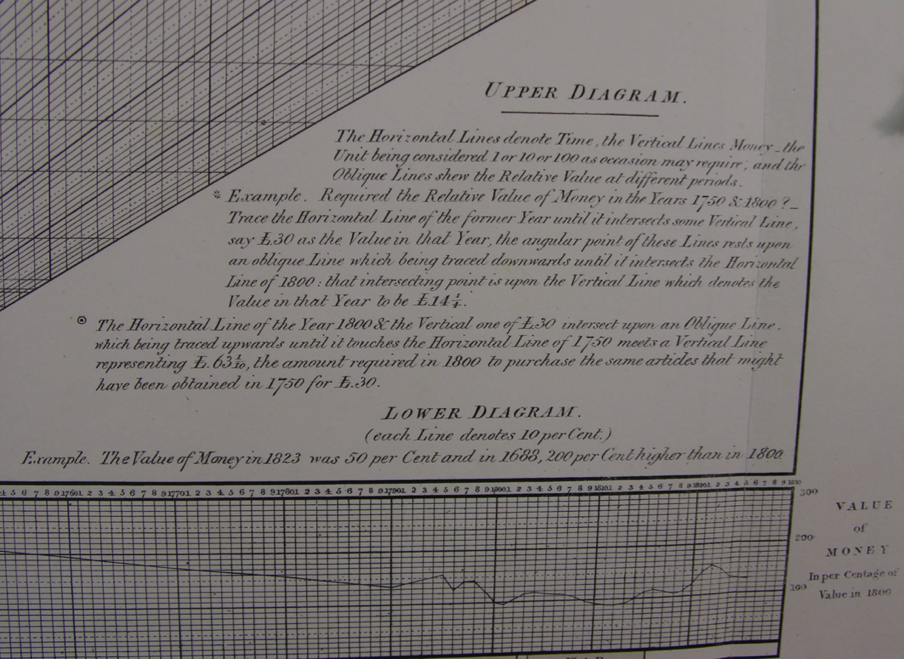 UPPER DIAGRAM.
The Horizontal Lines denote Time, the Vertical Lines Money _ the
Unit being considered 1 or 10 or 100 as occasion may require; and the
Oblique Lines shew the Relative Value at different periods.
* Example. Required the Relative Value of Money in the Years 1750 & 1800?_
Trace the Horizontal Line of the former Year until it intersects some Vertical Line,
say £.30 as the Value in that Year, the angular point of these Lines rests upon
an oblique Line which being traced downwards until it intersects the Horizontal
Line of 1800: that intersecting point is upon the Vertical Line which denotes the
Value in that Year to be £.14¼.
⊙ The Horizontal Line of the Year 1800 & the Vertical one of £.30 intersect upon an Oblique Line,
which being traced upwards until it touches the Horizontal Line of 1750 meets a Vertical Line
representing £.63⅒, the amount required in 1800 to purchase the same articles that might
have been obtained in 1750 for £.30.
LOWER DIAGRAM.
(each Line denotes 10 per Cent.)
Example. The Value of Money in 1823 was 50 per Cent and in 1688, 200 per Cent higher than in 1800
300
200
100
VALUE
of
MONEY
In per Centage of
Value in 1800